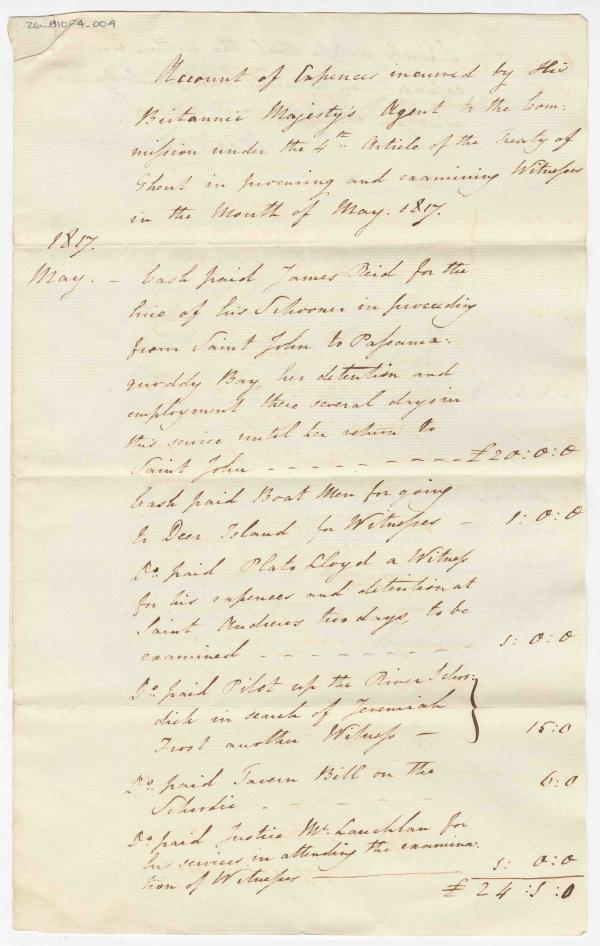 26-B10F4-004
Account of Expences incurred by His
Britannic Majesty's Agent to the Com:
mission under the 4th. Article of the Treaty of
Ghent in procuring and examining Witnesses
in the Month of May. 1817.
1817.
May. – Cash paid James Reid for the
hire of his Schooner in proceeding
from Saint John to Passama:
quoddy Bay, her detention and
employment there several days in
this service until her return to
Saint John - - - - - - - - - £20:0:0
Cash paid Boat Men for going
to Deer Island for Witnesses – 1:0:0
Do. paid Plato Lloyd a Witness
for his expences and detention at
Saint Andrews two days, to be
examined - - - - - - - - - 1:0:0
Do. paid Pilot up the River Schoo:
dick in search of Jeremiah
Frost another Witness – 15:0
Do. paid Tavern Bill on the
Schoodic - - - - 6:0
Do. paid Justice Mc. Lauchlan for
his services in attending the examina:
tion of Witnesses 1:0:0
£24:1:0